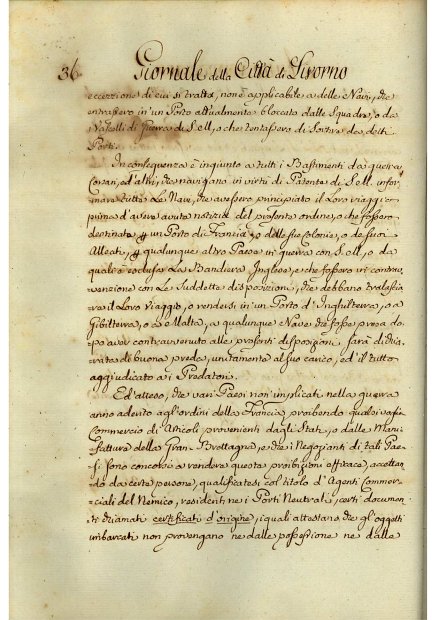 36. Giornale della Città di Livorno
eccezzione di cui si tratta, non è applicabile a delle Navi, che
entrassero in un Porto attualmente bloccato dalle Squadre, o da
Vascelli di Guerra di S. M., o che tentassero di Sortire da detti
Porti.
In conseguenza è ingiunto a tutti i Bastimenti da guerra
Corsari, ed altri, che navigano in virtù di Patente di S. M. infor
mare tutte Le Navi, che avessero principiato il Loro viaggio
prima d'avere avuto notizia del presente ordine, e che fossero
destinate p un Porto di Francia, o delle sue Colonie, o de suoi
Alleati, o p qualunque altro Paese in guerra con S. M., o da
quali è esclusa La Bandiera Inglese, e che fossero in contra
venzione con Le Suddette disposizioni, che debbano tralascia
re il Loro Viaggio, o rendersi in un Porto d'Inghilterra, o a
Gibilterra, o a Malta, e qualunque Nave che fosse presa do
po aver contravenuto alle presenti disposizioni sarà dichia
rata di buona preda, unitamente al suo carico, ed il tutto
aggiudicato a i Predatori.
Ed atteso, che vari Paesi non implicati nella guerra
anno aderito agl'ordini della Francia, proibendo qualsivoglia
Commercio di Articoli provenienti dagli Stati, o dalle Mani
fatture della Gran Brettagna, e che i Negozianti di tali Pae
si sono concorsi a rendere questa proibizione efficace, accettan
do da certe persone, qualificatesi col titolo d'Agenti Commer
ciali del Nemico, residenti ne i Porti Neutrali, certi documen
ti chiamati certificati d'origine, i quali attestano che gl'oggetti
imbarcati non provengano ne dalle possessione ne dalle